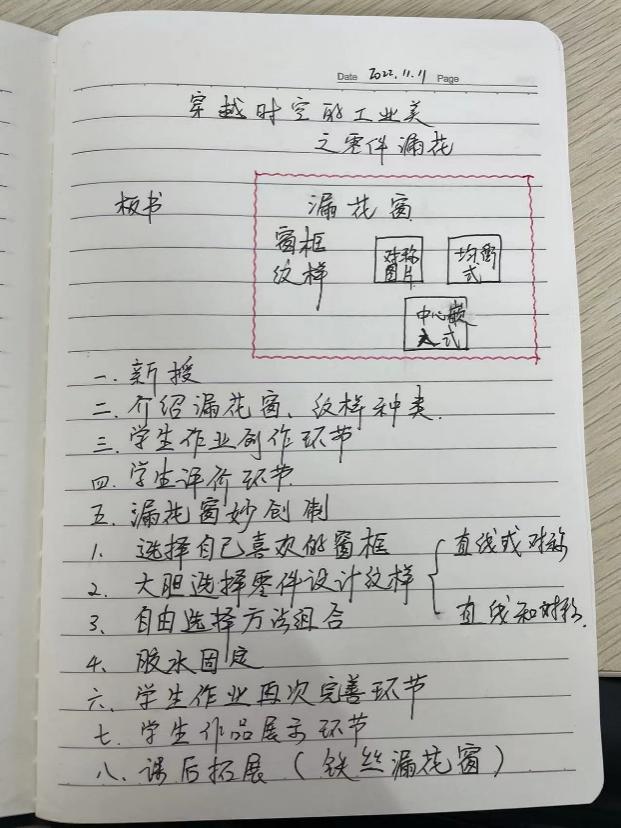 Date 2022.11.11 Page
穿越时空的工业美
之零件漏花
板书
漏花窗
窗框
纹样
对称
图片
均衡
式
中心嵌
入式
一.新授
二.介绍漏花窗、纹样种类.
三.学生作业创作环节
四.学生评价环节.
五.漏花窗妙创制
1.选择自己喜欢的窗框
直线或对称
2.大胆选择零件设计纹样
3、自由选择方法组合
直线和对称.
4、胶水固定
六、学生作业再次完善环节
七.学生作品展示环节
八、课后拓展(铁丝漏花窗)